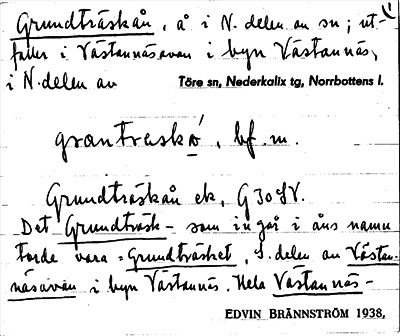 Grundträskån, å i N. delen av sn; ut-
faller i Västannäsavan i byn Västannäs,
i N. delen av Töre sn, Nederkalix tg, Norrbottens l.
grantraskǫ́, bf. m.
Grundträskån ek. G30SV.
Det Grundträsk- som ingår i åns namn
torde vara = Grundträsket, S. delen av Västan-
näsavan i byn Västannäs. Hela Västannäs-
EDVIN BRÄNNSTRÖM 1938.